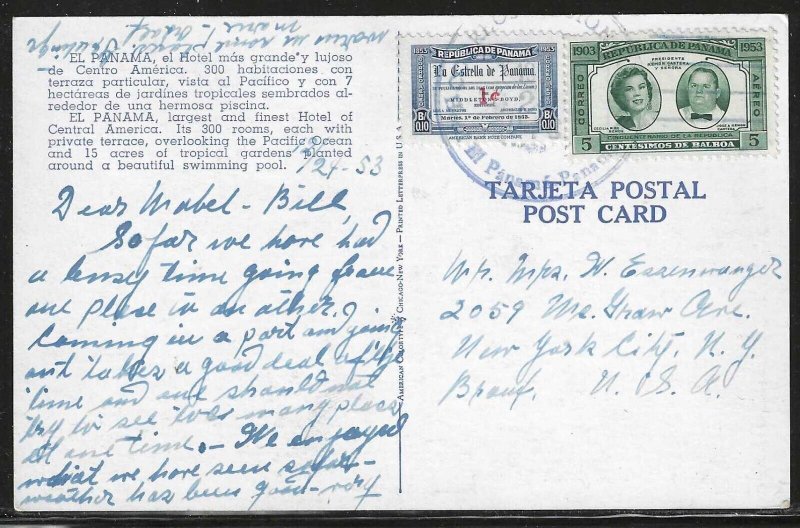 EL PANAMA, el Hotel más grande y lujoso
de Centro América. 300 habitaciones con
terraza particular, vista al Pacífico y con 7
hectáreas de jardines tropicales sembrados al-
rededor de una hermosa piscina.
EL PANAMA, largest and finest Hotel of
Central America. Its 300 rooms, each with
private terrace, overlooking the Pacific Ocean
and 15 acres of tropical gardens planted
around a beautiful swimming pool.
24-53
Dear Mabel - Bill,
So far we have had
a busy time going from
one place in an other.
Coming in a port and going
out takes a good deal of
time and one should not
try to see too many places
at one time. - We enjoyed
what we have seen so far -
weather has been good - very
warm in some places.
AMERICAN COLORTYPE, CHICAGO-NEW YORK — PRINTED LETTERPRESS IN U.S.A.
1853 REPÚBLICA DE PANAMA 1953
La Estrella de Panamá.
1c
Martes, 1º de Febrero de 1853.
B/0.10 B/0.10
1903 REPUBLICA DE PANAMA 1953
PRESIDENTE
Y SEÑORA
CORREO AEREO
CINCUENTENARIO DE LA REPUBLICA
5 CENTESIMOS DE BALBOA 5
El Panamá
TARJETA POSTAL
POST CARD
Mr. Mrs. W. Essenwanger
2059 Mc. Graw Ave.
New York City, N. Y.
Bronx. U. S. A.